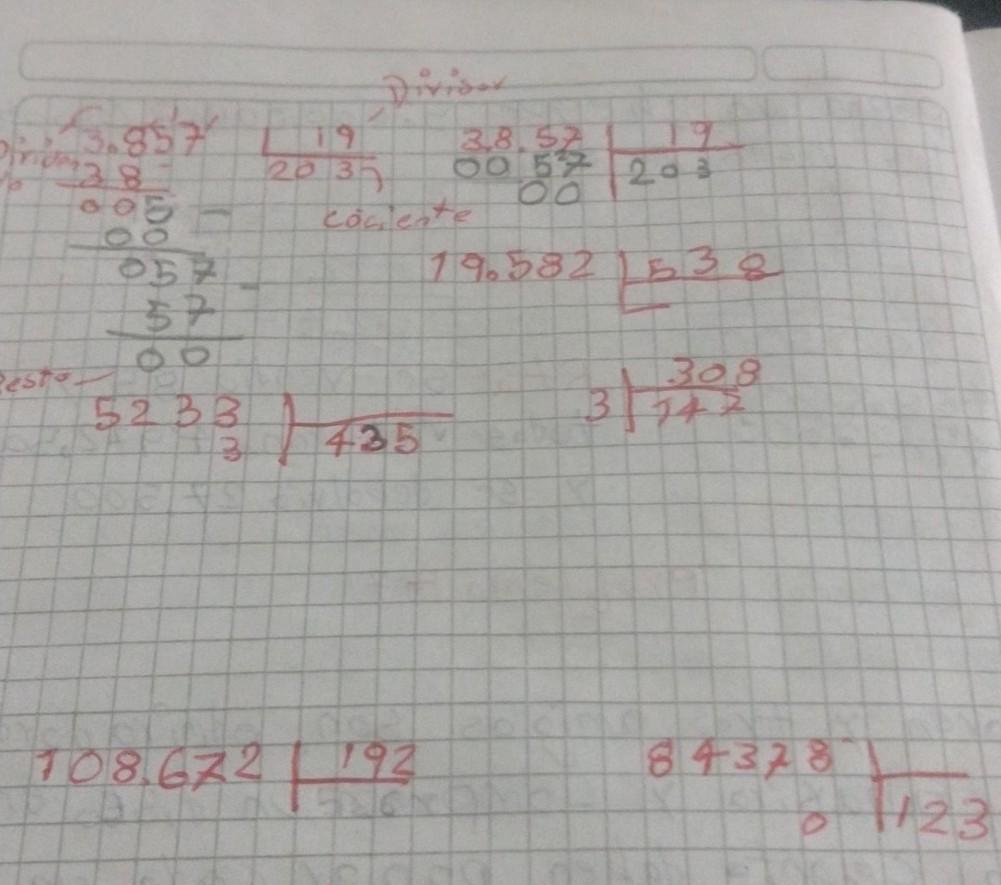 Divisor
3.857 19
38 2037
cociente
005 -
00
057 -
57
00
Resto
3.8.57 19
0057 203
00
19.582 538
5233
3 435
308
3 147
108.672 192
84378
0 123